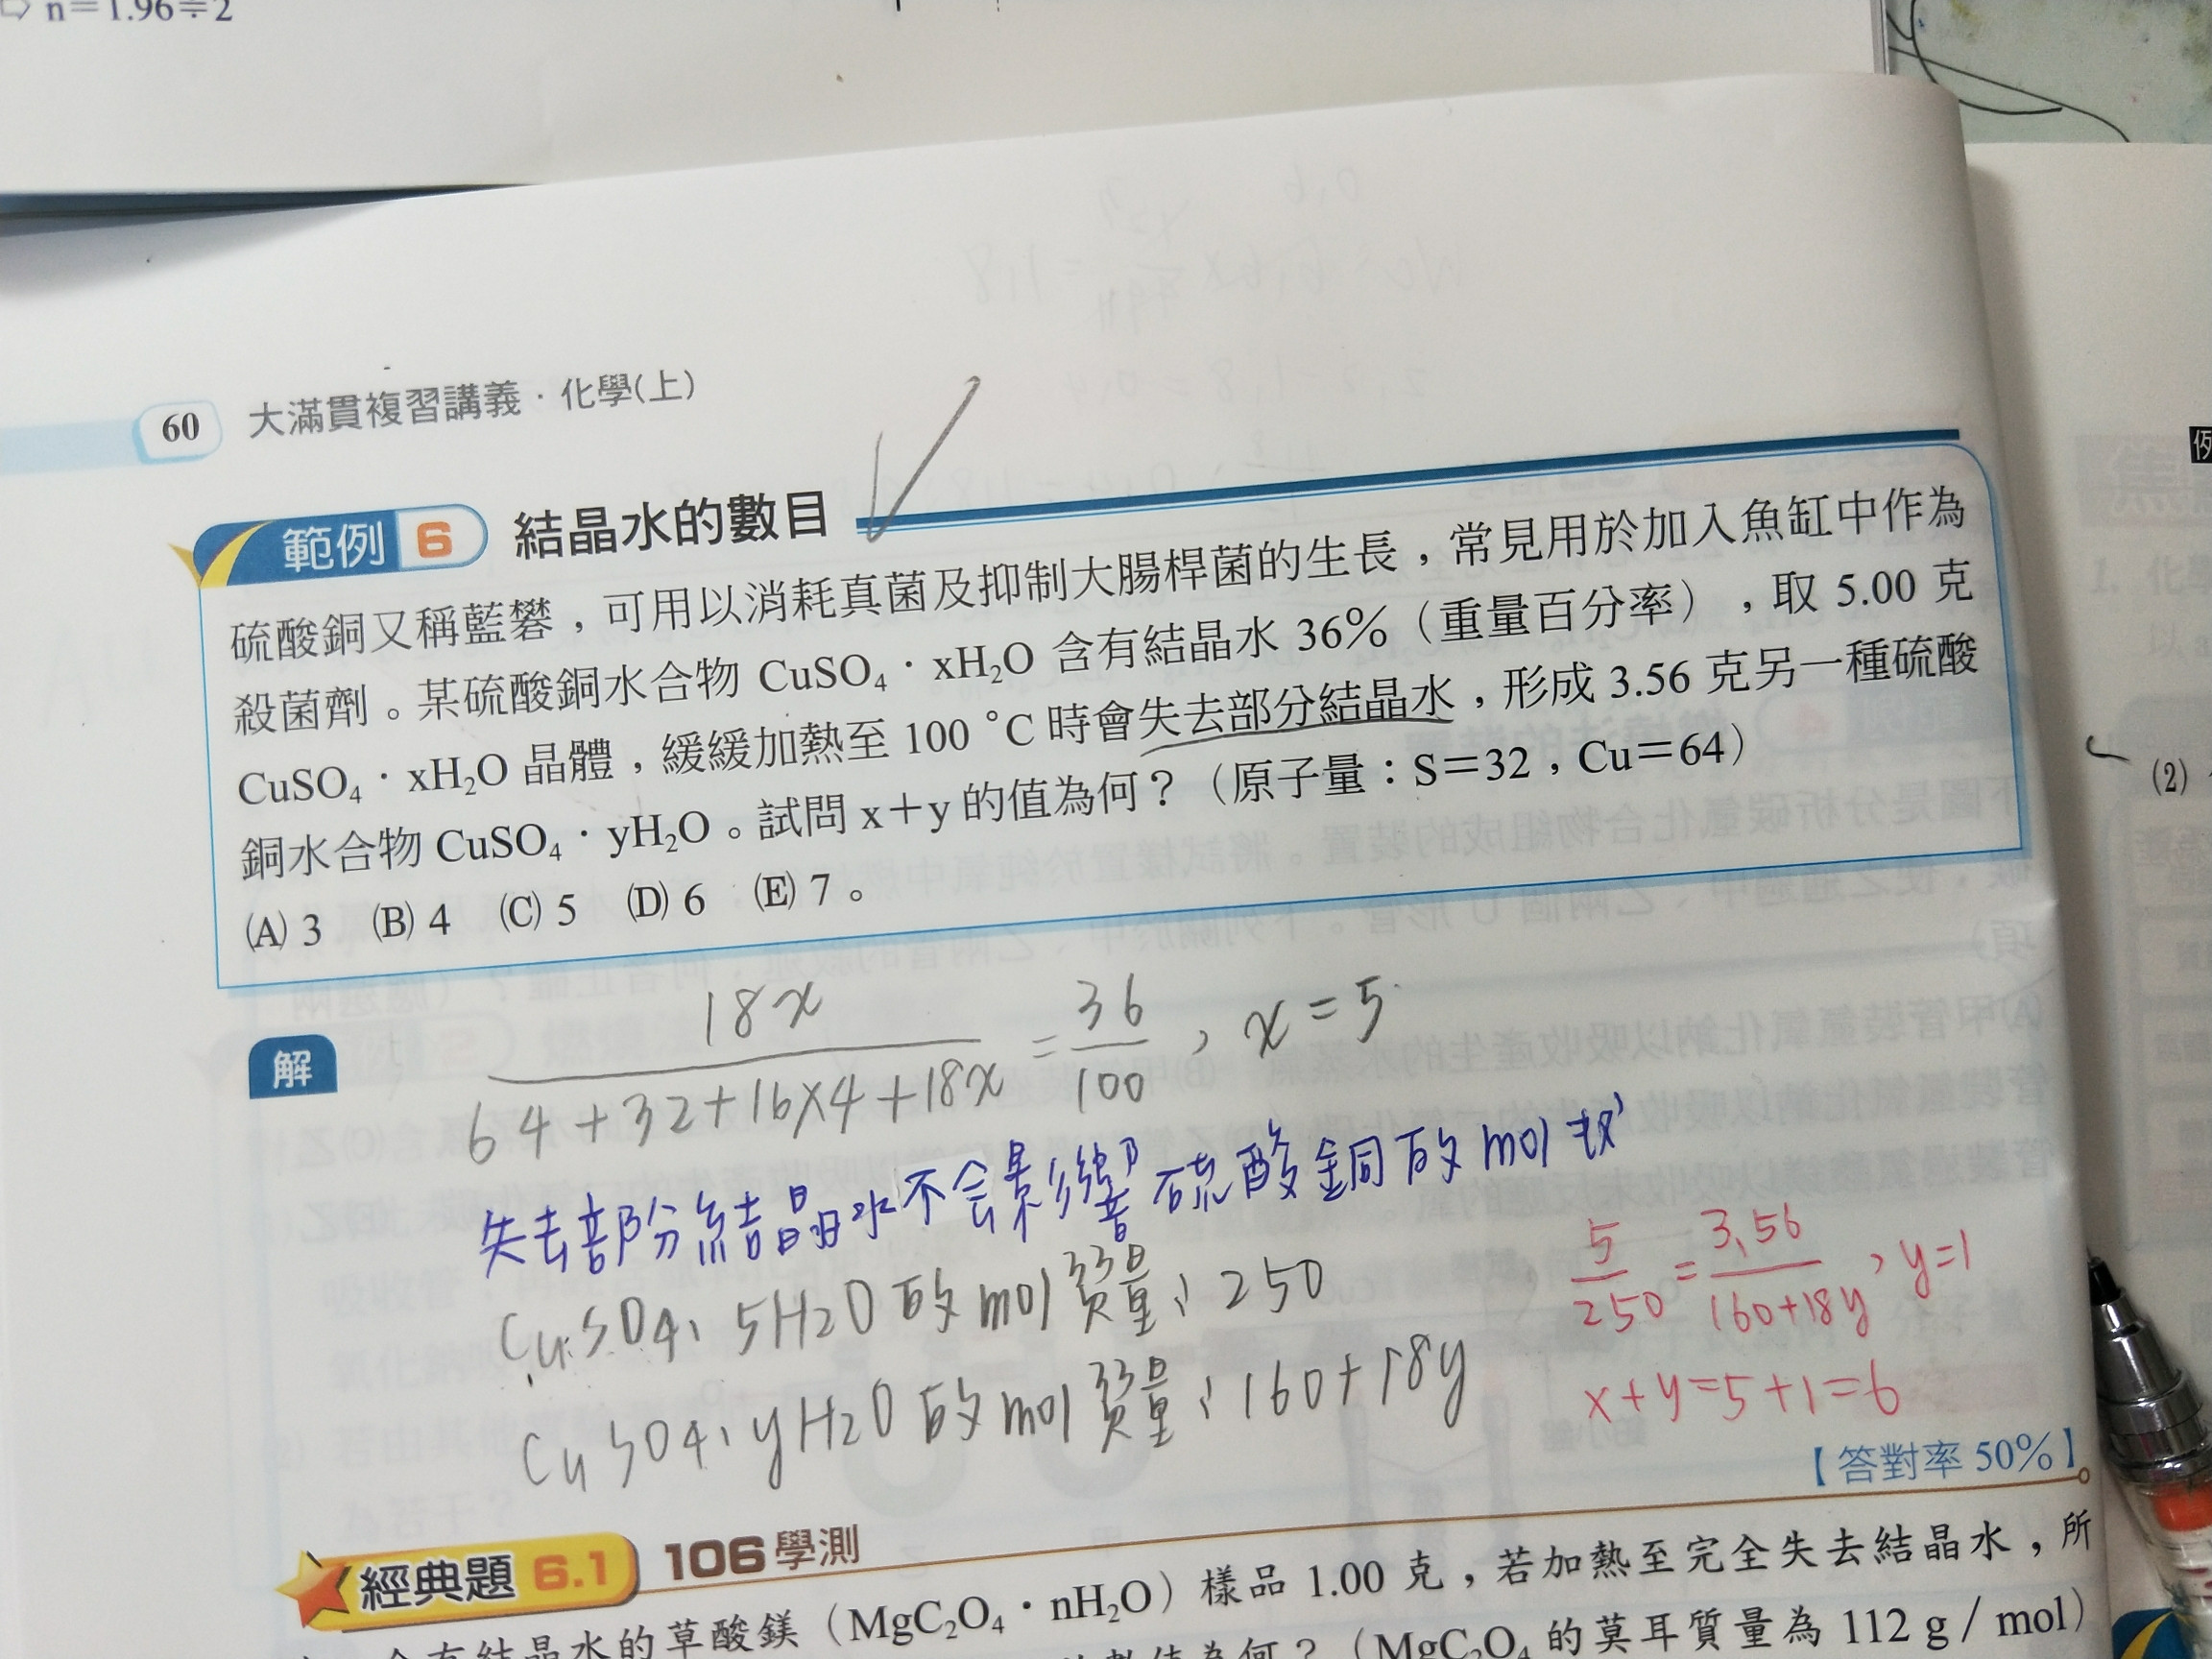 n＝1.96÷2
60 大滿貫複習講義．化學(上)
範例 6 結晶水的數目
硫酸銅又稱藍礬，可用以消耗真菌及抑制大腸桿菌的生長，常見用於加入魚缸中作為
殺菌劑。某硫酸銅水合物 CuSO₄．xH₂O 含有結晶水 36％（重量百分率），取 5.00 克
CuSO₄．xH₂O 晶體，緩緩加熱至 100 ℃ 時會失去部分結晶水，形成 3.56 克另一種硫酸
銅水合物 CuSO₄．yH₂O。試問 x＋y 的值為何？（原子量：S＝32，Cu＝64）
(A) 3 (B) 4 (C) 5 (D) 6 (E) 7。
解
18x / 64+32+16×4+18x = 36/100，x=5
失去部分結晶水不会影響硫酸銅的mol数
CuSO4．5H2O的mol質量：250
CuSO4．yH2O的mol質量：160+18y
5/250 = 3.56/160+18y，y=1
x+y=5+1=6
【答對率 50％】
經典題 6.1 106 學測
結晶水的草酸鎂（MgC₂O₄．nH₂O）樣品 1.00 克，若加熱至完全失去結晶水，所
為何？（MgC₂O₄ 的莫耳質量為 112 g / mol）
1. 化學
(2)